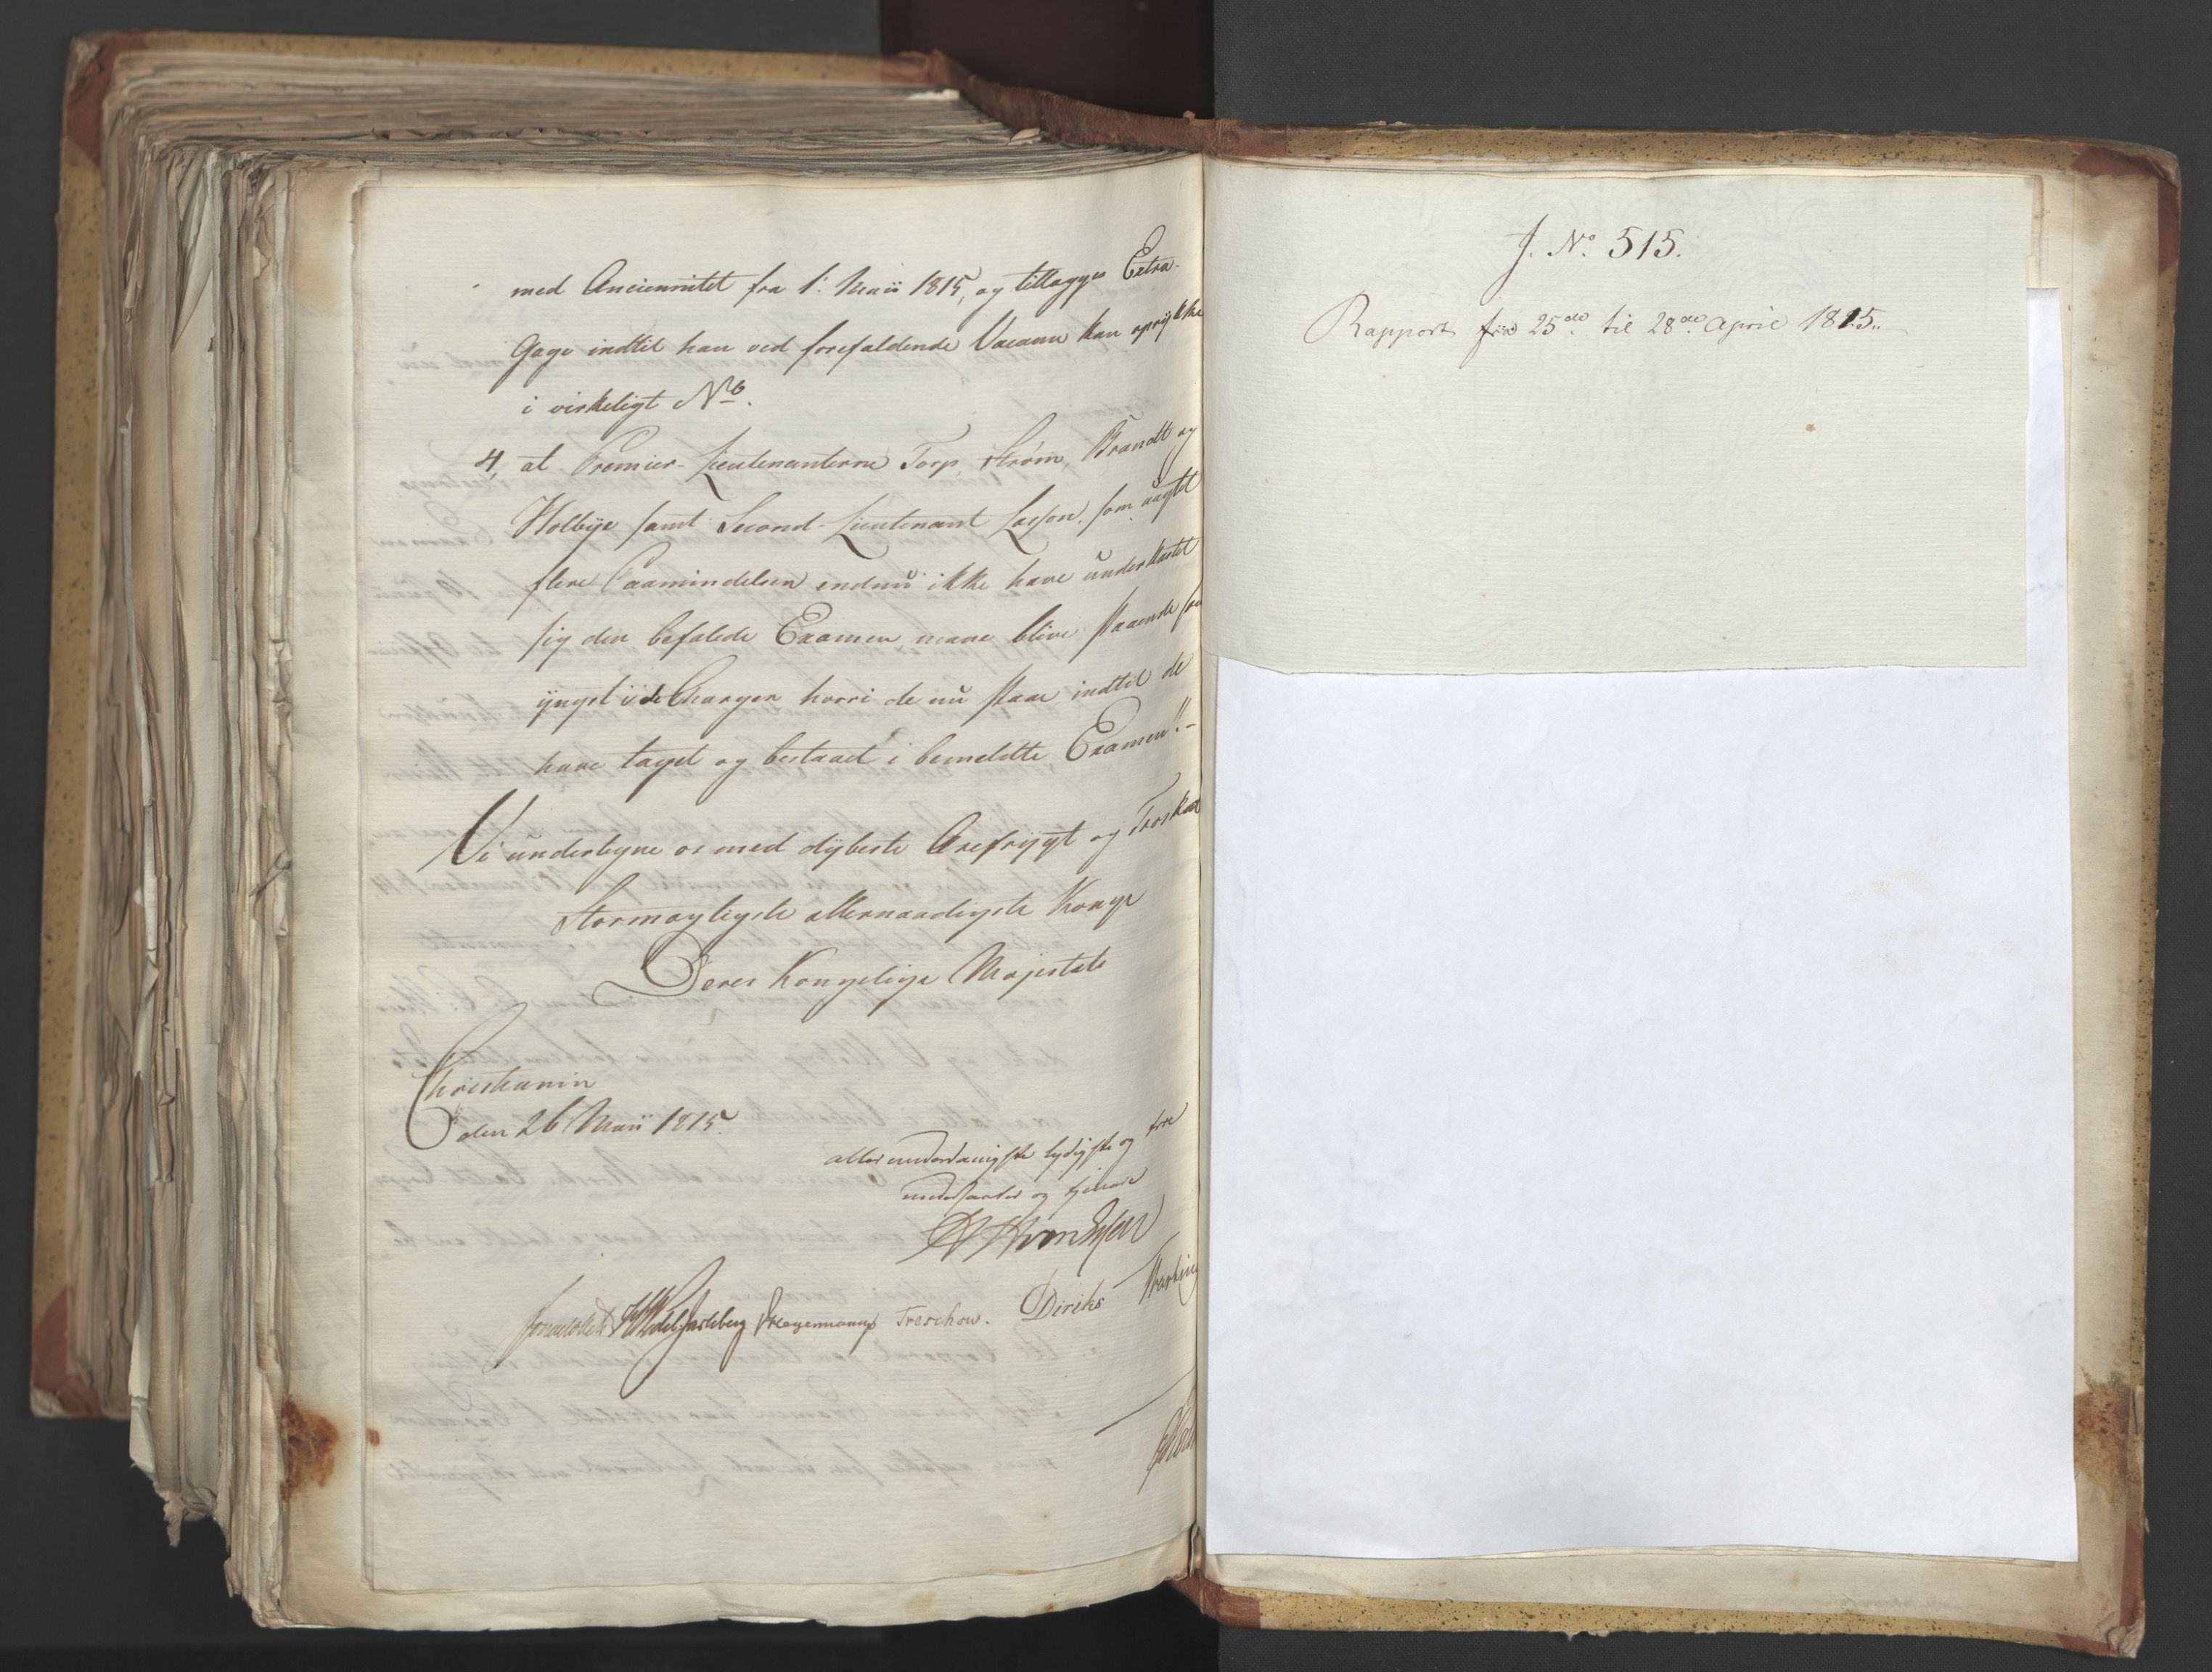 med Anciennitet fra 1: Maii 1815, og tillægges Extra-
Gage indtil han ved forefaldende Vacance kan oprykke
i virkeligt No.
4, at Premier-Lieutenanterne Torp, Strøm, Brandt og
Holbye samt Second-Lieutenant Lasson, som uagtet
flere Paamindelser endnu ikke have underkastet
sig den befalede Examen, maae blive staaende som
yngst i de Charger hvori de nu staae indtil de
have taget og bestaaet i bemeldte Examen!! -
Vi undertegne os med dybeste Ærefrygt og Troskab
Stormægtigste allernaadigste Konge
Deres Kongelige Majestæts
Christiania
den 26 Maii 1815.
allerunderdanigste lydigste og troe
undersaatter og tjenere
Sommerhielm HWedel Jarlsberg Hegermann Treschow. Diriks
J. No. 515.
Rapport fra 25de til 28de April 1815..